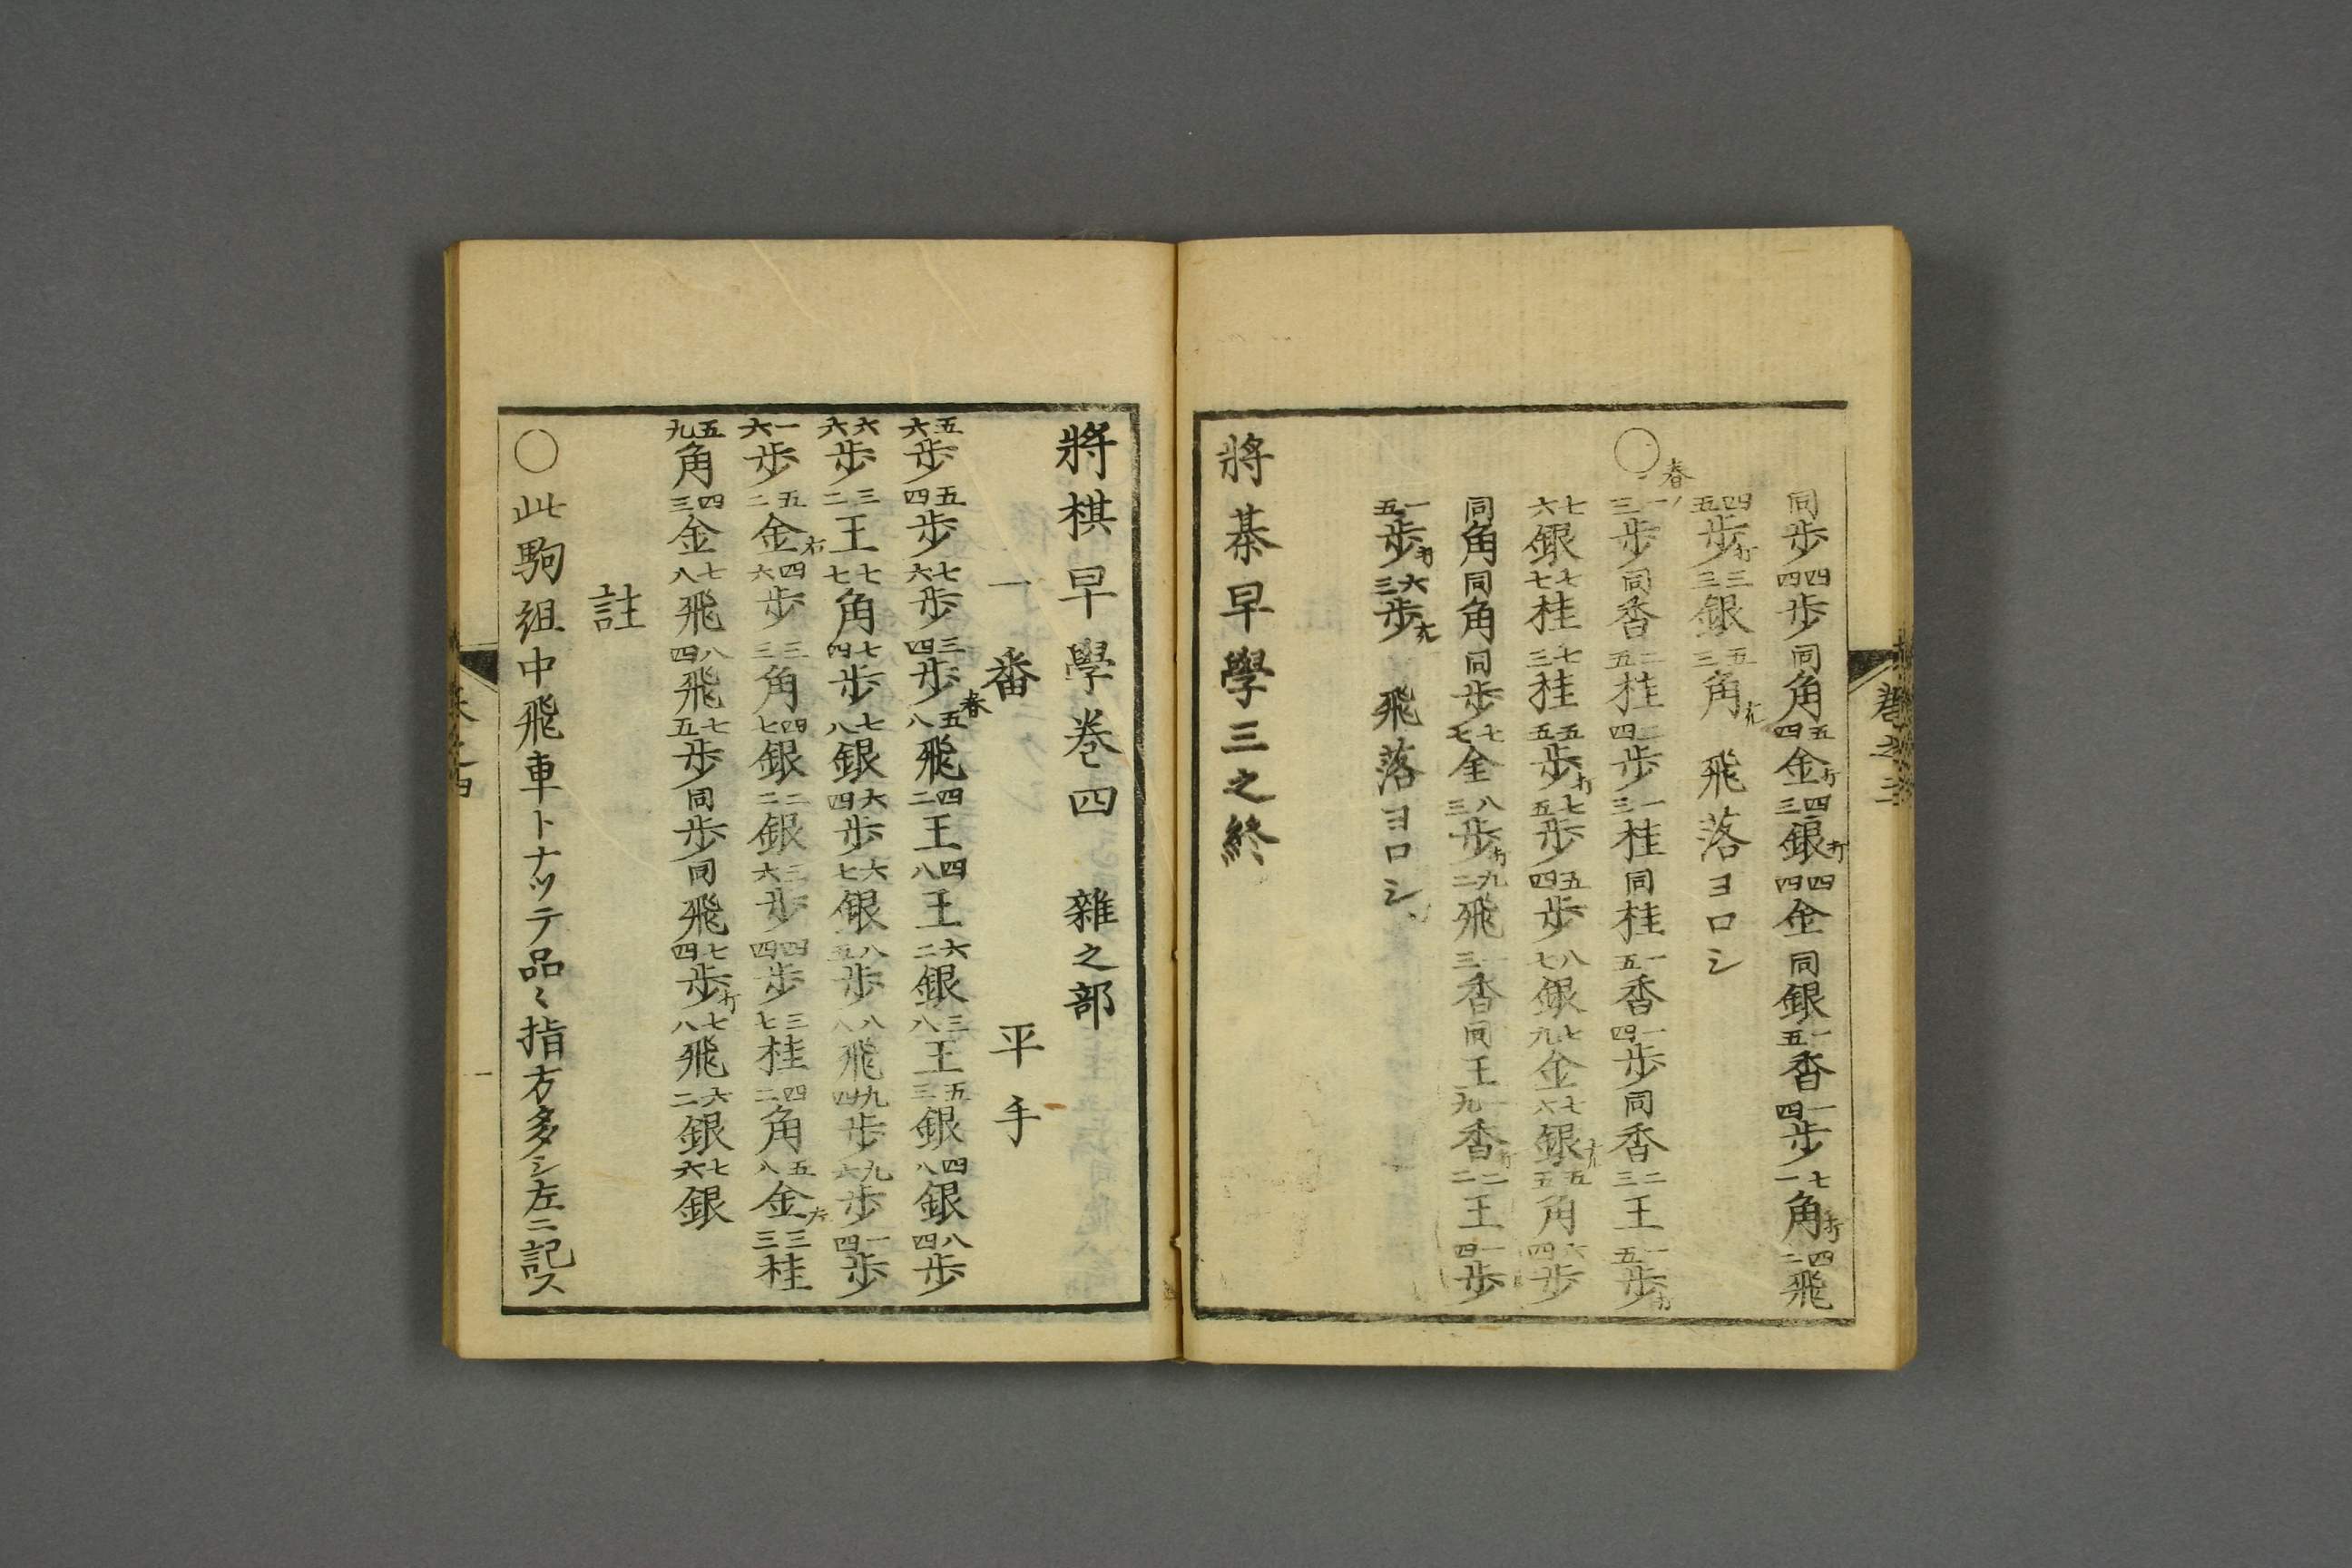 同歩四四歩同角五四金打四三銀打四四金同銀一五香一四歩七一角打四二飛
四五歩打三三銀五三角成　飛落ヨロシ
○春一三歩同香二五桂二四歩一三桂同桂一五香一四歩同香二三王一五歩打
七六銀七七桂七三桂五五歩打七五歩五四歩八七銀七九金七六銀五五角六四歩
同角同角同歩七七金八三歩打九二飛一三香同王一九香打二二王一四歩
一五歩打六三歩成　飛落ヨロシ
將棊早學三之終
巻之三
將棋早學巻四　雜之部
一番　平手
五六歩五四歩七六歩三四歩春五八飛四二王四八王六二銀三八王五三銀四八銀八四歩
六六歩三二王七七角七四歩七八銀六四歩六七銀八五歩八八飛九四歩九六歩一四歩
一六歩五二金右四六歩三三角四七銀二二銀三六歩四四歩三七桂四二角五八金三三桂
五九角四三金七八飛八四飛七五歩同歩同飛七四歩打七八飛六二銀七六銀
註
○此駒組中飛車トナツテ品〻指方多シ左ニ記ス
一